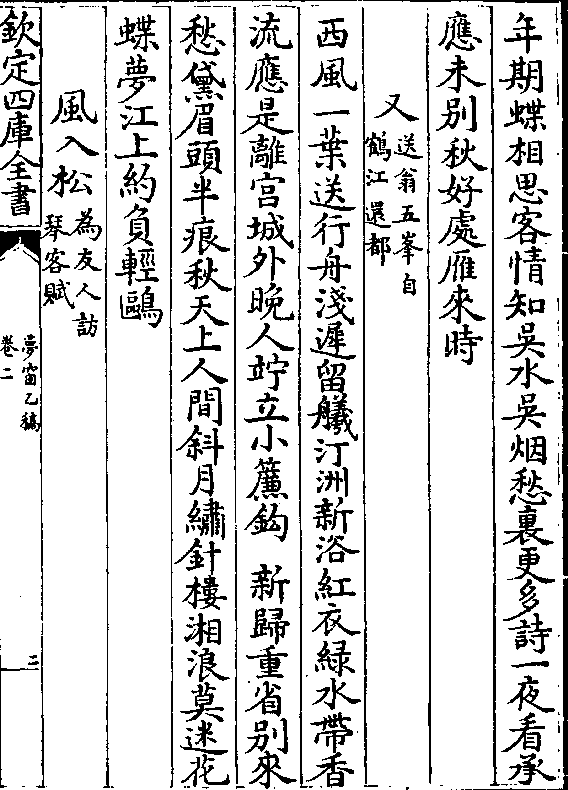 年期蝶相思客情知吳水吳烟愁裏更多詩一夜看承
應未别秋好處雁來時
又送翁五峯自
鶴江還都
西風一葉送行舟淺遲留艤汀洲新浴紅衣緑水帶香
流應是離宫城外晚人竚立小簾鈎 新歸重省别來
愁黛眉頭半痕秋天上人間斜月繡針樓湘浪莫迷花
蝶夢江上約負輕鷗
風入松為友人訪
琴客賦
欽定四庫全書
夢窗乙稿
卷二
二